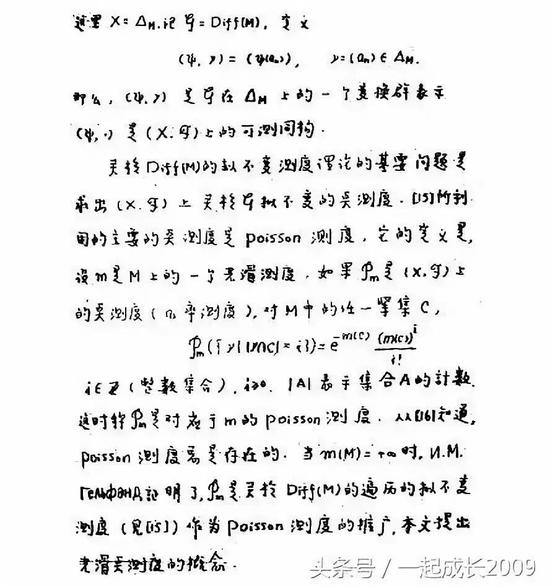 这里 X=Δ_M. 记 𝒢=Diff(M), 定义
(ψ, γ) = (ψ(a_n)), γ=(a_n)∈Δ_M.
那么, (ψ, γ) 是 𝒢 在 Δ_M 上的一个变换群表示
(ψ, ·) 是 (X, 𝓕) 上的可测同构.
关于 Diff(M) 的拟不变测度理论的基要问题是
求出 (X, 𝓕) 上关于 𝒢 拟不变的吴测度. [15] 所利
用的主要的吴测度是 poisson 测度, 它的定义是,
设 m 是 M 上的一个光滑测度, 如果 P_m 是 (X, 𝓕) 上
的吴测度 (几率测度), 对 M 中的任一紧集 C,
P_m({γ||γ∩C|=i})=e^{-m(C)} (m(C))^i / i!
i∈Z (整数集合), i≥0, |A| 表示集合 A 的计数
这时称 P_m 是对应于 m 的 Poisson 测度. 从 [16] 知道,
poisson 测度是存在的. 当 m(M)=+∞ 时, И.М.
ГЕЛЬФАНД 证明了, P_m 是关于 Diff(M) 的遍历的拟不变
测度 (见 [15]) 作为 Poisson 测度的推广, 本文提出
光滑吴测度的概念.
头条号 / 一起成长2009